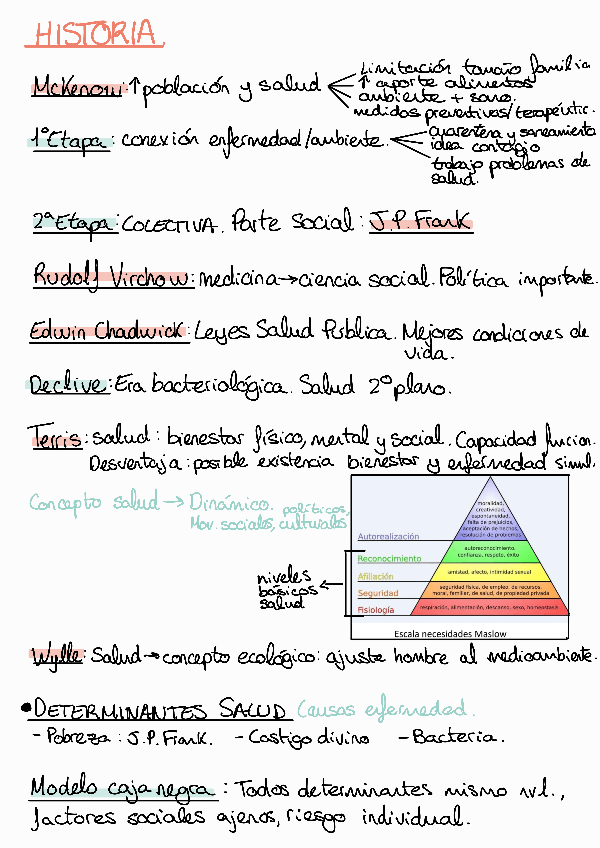 HISTORIA
McKenow: ↑ población y salud
Limitación tamaño familia
↑ aporte alimentos
ambiente + sano.
medidas preventivas/terapéutic.
1ºEtapa: conexión enfermedad/ambiente.
cuarentena y saneamiento
idea contagio
trabajo problemas de
salud.
2ªEtapa: COLECTIVA. Parte social: J.P. Frank
Rudolf Virchow: medicina→ciencia social. Política importante.
Edwin Chadwick: Leyes Salud Pública. Mejores condiciones de
vida.
Declive: Era bacteriológica. Salud 2º plano.
Terris: salud: bienestar físico, mental y social. Capacidad funcion.
Desventaja: posible existencia bienestar y enfermedad simul.
Concepto salud → Dinámico. políticos,
Mov. sociales, culturales
moralidad,
creatividad,
espontaneidad,
falta de prejuicios,
aceptación de hechos,
resolución de problemas
Autorealización
autoreconocimiento,
confianza, respeto, éxito
Reconocimiento
amistad, afecto, intimidad sexual
Afiliación
seguridad física, de empleo, de recursos,
moral, familiar, de salud, de propiedad privada
Seguridad
respiración, alimentación, descanso, sexo, homeostasis
Fisiología
niveles
básicos
salud
Escala necesidades Maslow
Wylle: Salud→concepto ecológico: ajuste hombre al medioambiente.
•DETERMINANTES SALUD Causas enfermedad.
- Pobreza: J.P. Frank. - Castigo divino - Bacteria.
Modelo caja negra: Todos determinantes mismo nvl.,
factores sociales ajenos, riesgo individual.